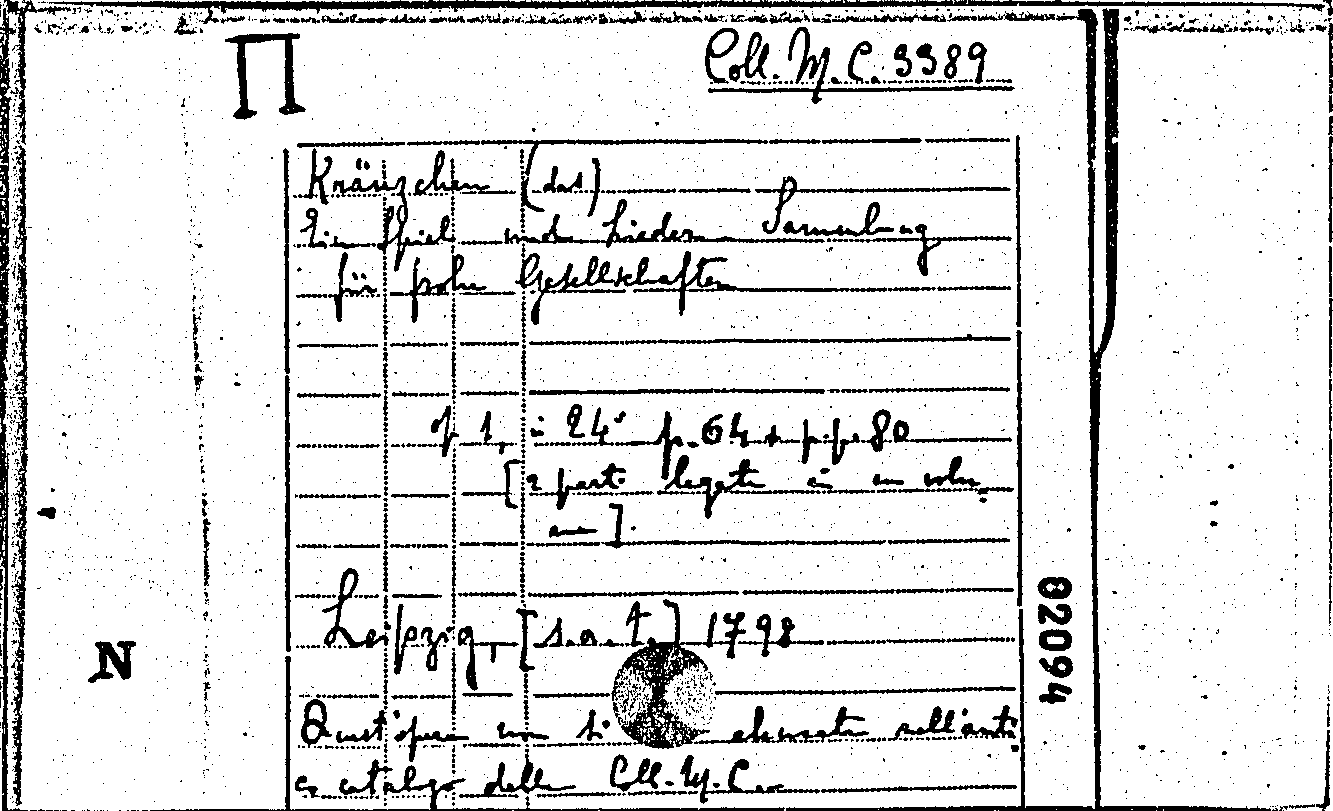 Π
Coll. M. C. 3389
Kränzchen (das)
Ein Spiel und Lieder Sammlung
für frohe Gesellschaften
of 1, in 24° p. 64 + p.p. 80
[2 parti legate in un volu
me].
Leipzig, [s.n.t.] 1798
Quest'opera non elencata nell'anti
co catalogo della Coll. M. C.
N
02094